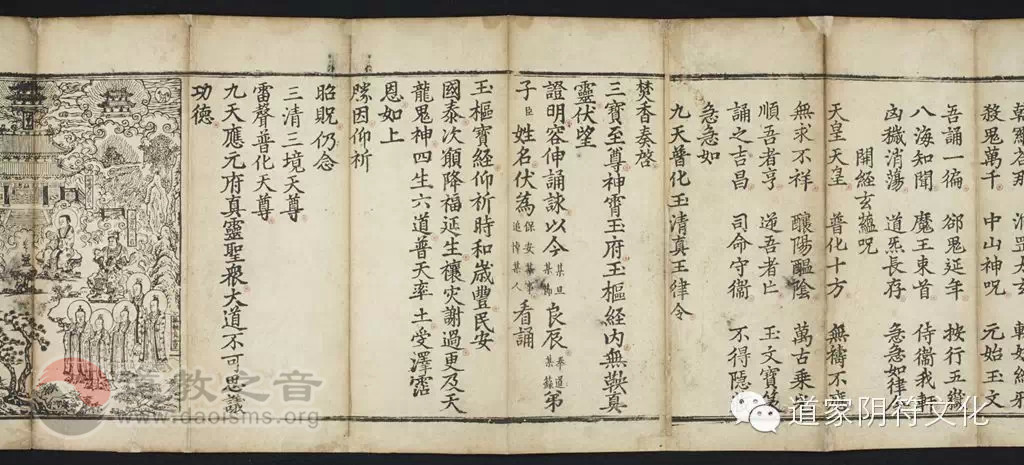 殺鬼萬千 中山神呪 元始玉文
吾誦一徧 郤鬼延年 按行五嶽
八海知聞 魔王束首 侍衛我軒
凶穢消蕩 道炁長存 急急如律令
開經玄蘊呪
天皇天皇 普化十方 無禱不
無求不祥 釀陽醖陰 萬古乘
順吾者亨 逆吾者亡 玉文寶
誦之吉昌 司命守衞 不得隱
急急如
九天普化玉清真王律令
焚香奏啓
三寶至尊神霄玉府玉樞經内無鞅真
靈伏望
證明容伸誦詠以今某旦某時良辰奉道某籙弟
子臣姓名伏爲保安某事追悼某人看誦
玉樞寶經仰祈時和歲豐民安
國泰次願降福延生禳灾謝過更及天
龍鬼神四生六道普天率土受澤霑
恩如上
勝因仰祈
昭貺仍念
三清三境天尊
雷聲普化天尊
九天應元府真靈聖衆大道不可思議
功德
道教之音
www.daoisms.org
道家阴符文化